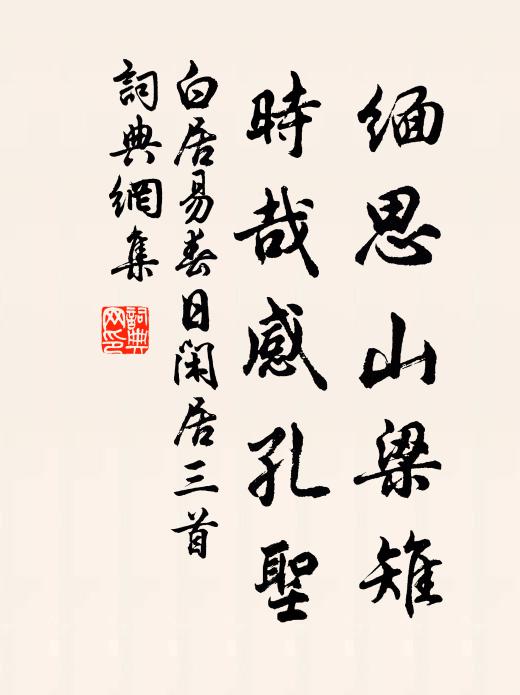 缅思山梁雉
時哉感孔聖
白居易春日閑居三首
詞典網集
詞典
网印